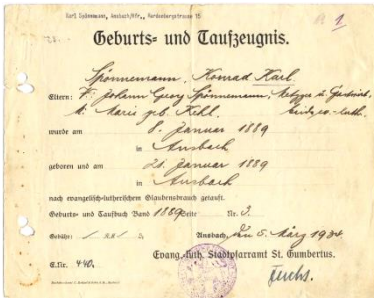 Karl Spönnemann, Ansbach/Mfr., Hardenbergstrasse 15
1
Geburts- und Taufzeugnis.
Sponnemann, Konrad Karl
Eltern: V: Johann Georg Spönnemann, Metzger u. Gastwirt,
M: Marie geb. Kehl, beide ev.-luth.
wurde am 8. Januar 1889
in Ansbach
geboren und am 21. Januar 1889
in Ansbach
nach evangelisch-lutherischem Glaubensbrauch getauft.
Geburts- und Taufbuch Band 1889 Seite Nr. 3.
Gebühr: Ansbach, den 5. März 1934
Evang.-luth. Stadtpfarramt St. Gumbertus.
E.Nr. 440.
Fuchs.